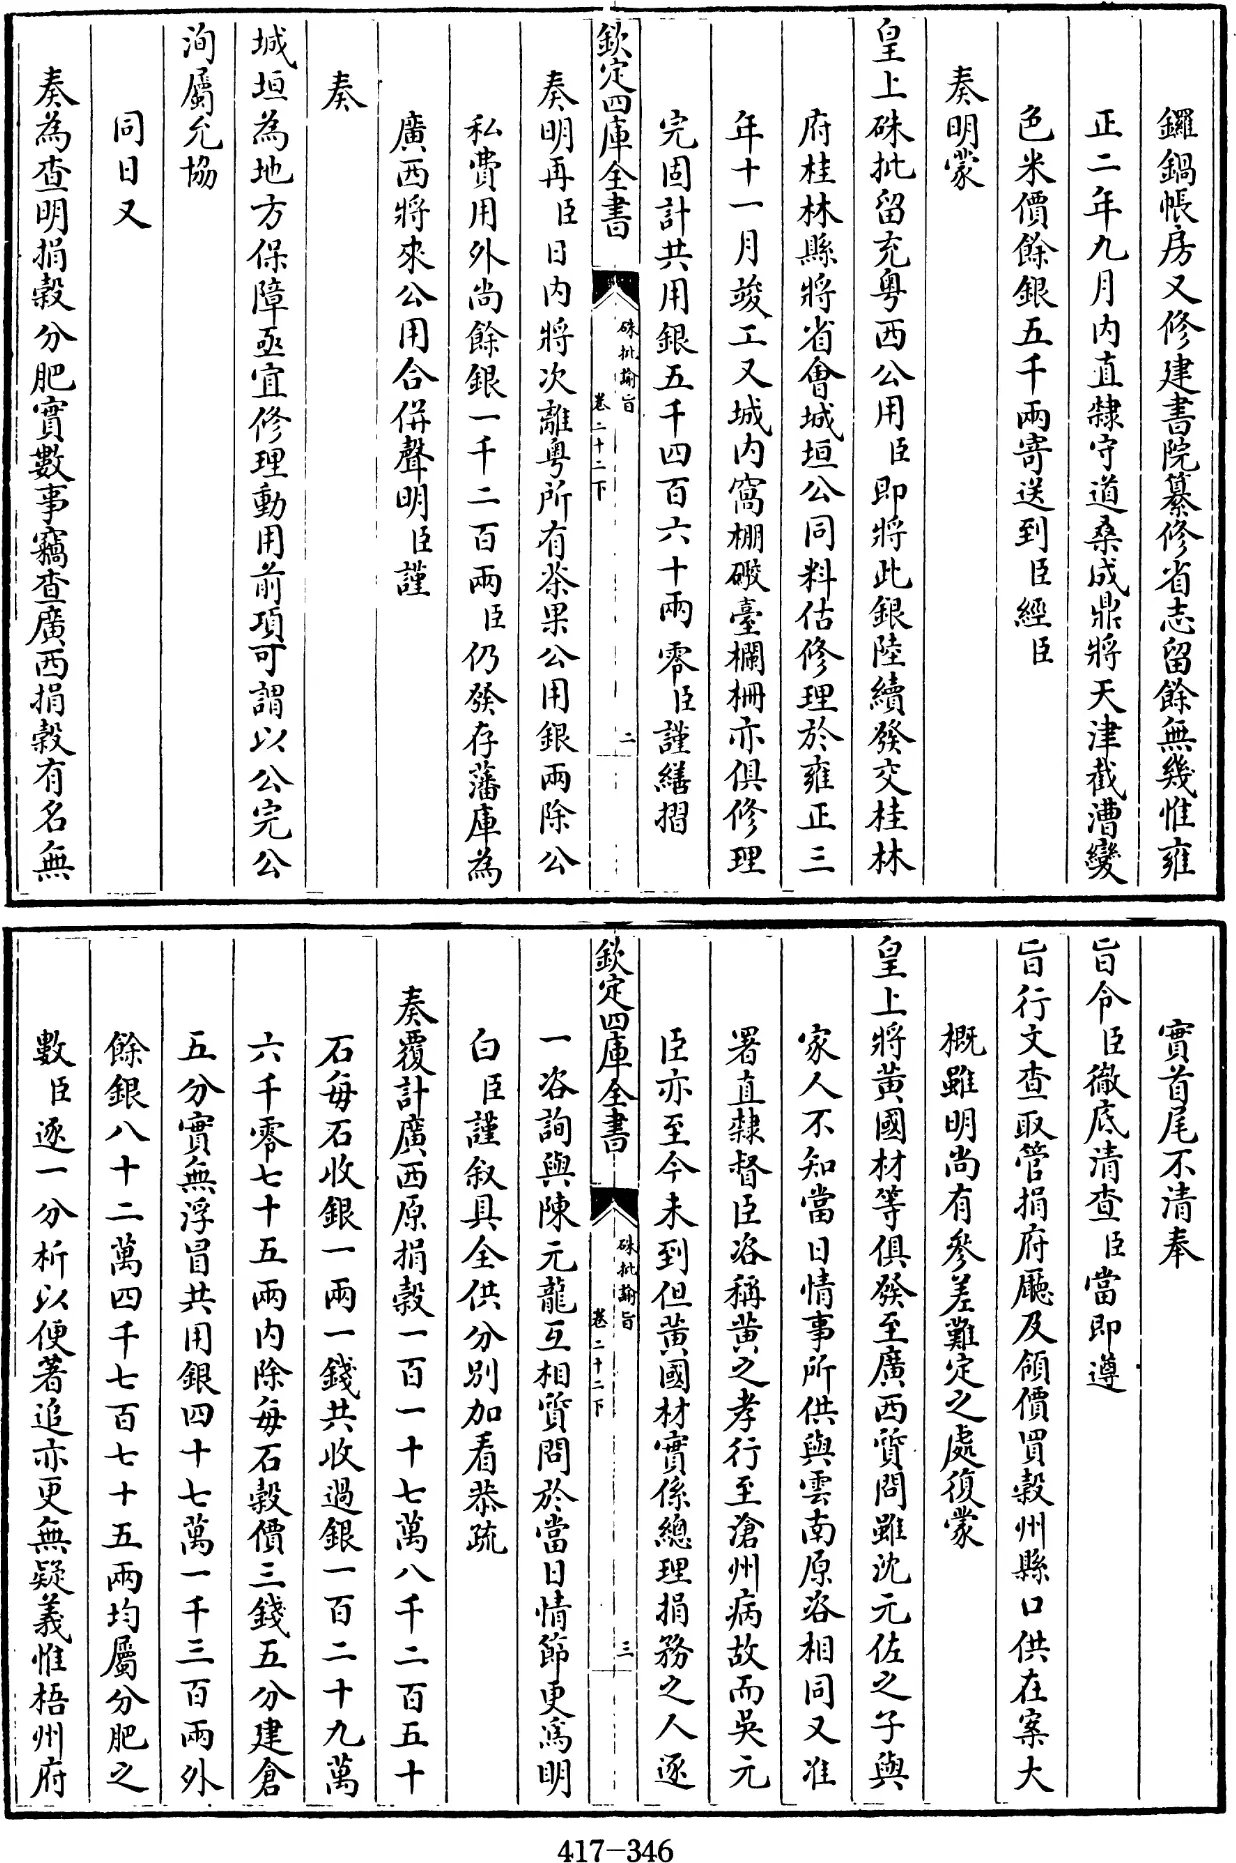 鑼鍋帳房又修建書院纂修省志留餘無幾惟雍
正二年九月内直隸守道桑成鼎將天津截漕變
色米價餘銀五千兩寄送到臣經臣
奏明蒙
皇上硃批留充粤西公用臣即將此銀陸續發交桂林
府桂林縣將省會城垣公同料估修理於雍正三
年十一月竣工又城内窩棚礮臺欄柵亦俱修理
完固計共用銀五千四百六十兩零臣謹繕摺
欽定四庫全書
硃批諭旨
卷二十二下
二
奏明再臣日内將次離粤所有茶果公用銀兩除公
私費用外尚餘銀一千二百兩臣仍發存藩庫為
廣西將來公用合併聲明臣謹
奏
城垣為地方保障亟宜修理動用前項可謂以公完公
洵屬允協
同日又
奏為查明捐穀分肥實數事竊查廣西捐穀有名無
實首尾不清奉
旨令臣徹底清查臣當即遵
旨行文查取管捐府廳及領價買穀州縣口供在案大
概雖明尚有參差難定之處復蒙
皇上將黄國材等俱發至廣西質問雖沈元佐之子與
家人不知當日情事所供與雲南原咨相同又准
署直隸督臣咨稱黄之孝行至滄州病故而吳元
臣亦至今未到但黄國材實係總理捐務之人逐
欽定四庫全書
硃批諭旨
卷二十二下
三
一咨詢與陳元龍互相質問於當日情節更爲明
白臣謹叙具全供分别加看恭疏
奏覆計廣西原捐穀一百一十七萬八千二百五十
石每石收銀一兩一錢共收過銀一百二十九萬
六千零七十五兩内除每石穀價三錢五分建倉
五分實無浮冒共用銀四十七萬一千三百兩外
餘銀八十二萬四千七百七十五兩均屬分肥之
數臣逐一分析以便著追亦更無疑義惟梧州府
417-346